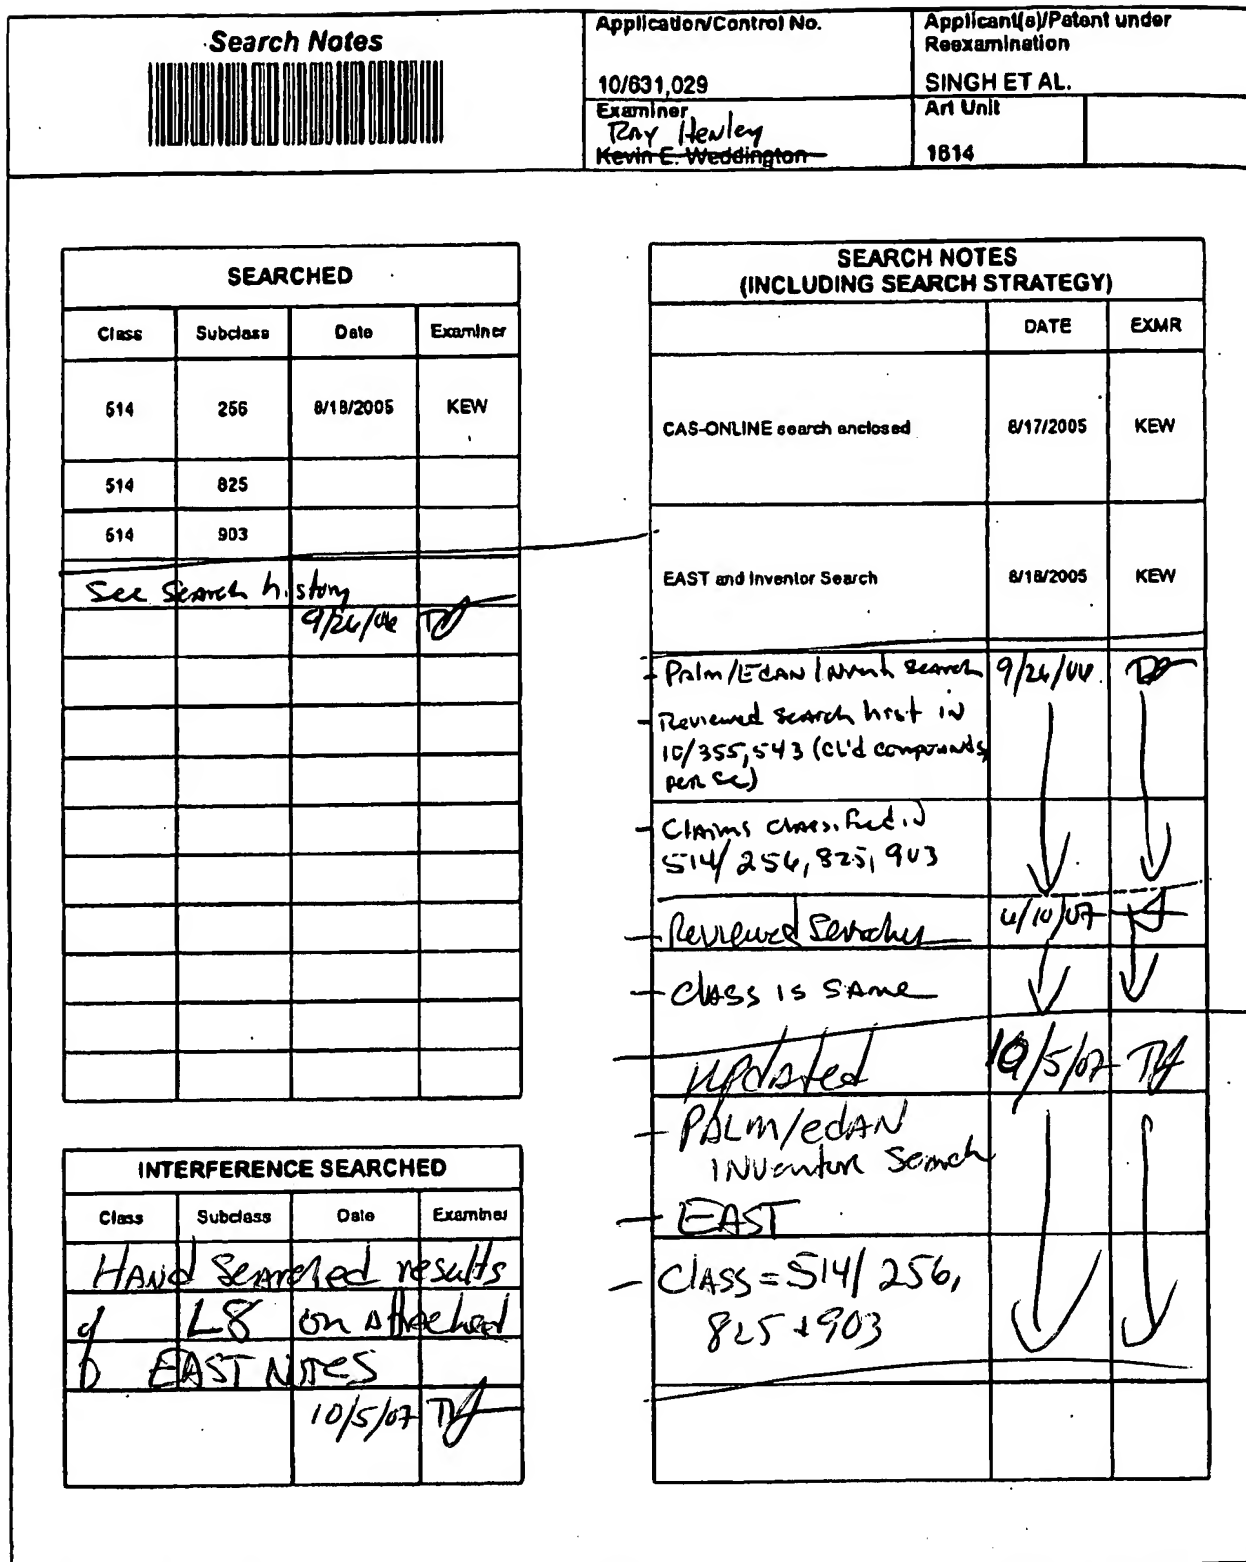 Search Notes
Application/Control No.
10/631,029
Applicant(s)/Patent under
Reexamination
SINGH ET AL.
Examiner
Ray Henley
Kevin E. Weddington
Art Unit
1614
SEARCHED
Class Subclass Date Examiner
514 256 8/18/2005 KEW
514 825
514 903
See Search history
9/26/06
INTERFERENCE SEARCHED
Class Subclass Date Examiner
HAND Searched results
of L8 on Attached
EAST NOTES
10/5/07
SEARCH NOTES
(INCLUDING SEARCH STRATEGY)
DATE EXMR
CAS-ONLINE search enclosed 8/17/2005 KEW
EAST and Inventor Search 8/18/2005 KEW
- Palm/EDAN Invent Search 9/26/06
- Reviewed search hist in
10/355,543 (cl'd compounds
per se)
- Claims classified in
514/256, 825, 903
- Reviewed Searches 4/10/07
- Class is same
updated 10/5/07
- PALM/eDAN
INventor Search
- EAST
- Class = 514/256,
825 + 903